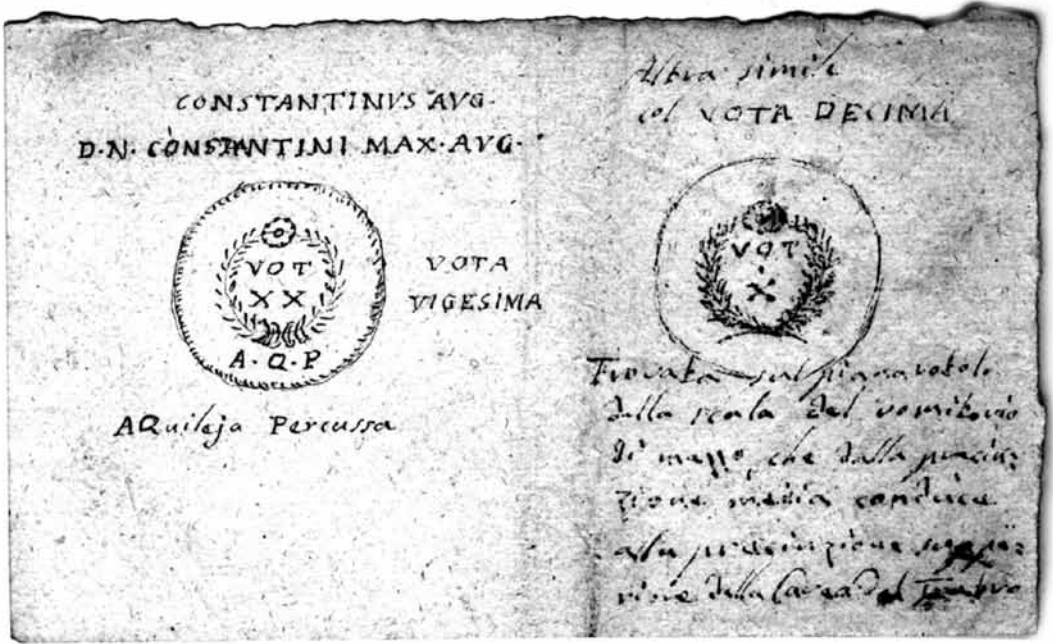 CONSTANTINVS AVG.
D.N. CONSTANTINI MAX.AVG.
VOT
XX
A.Q.P
VOTA
VIGESIMA
AQuileja Percussa
Altra simile
col VOTA DECIMA
VOT
X
Trovata sul pianarotolo
della scala del vomitorio
di mezzo, che dalla precin=
zione media conduce
alla precinzione supe=
riore della Cavea del Teatro